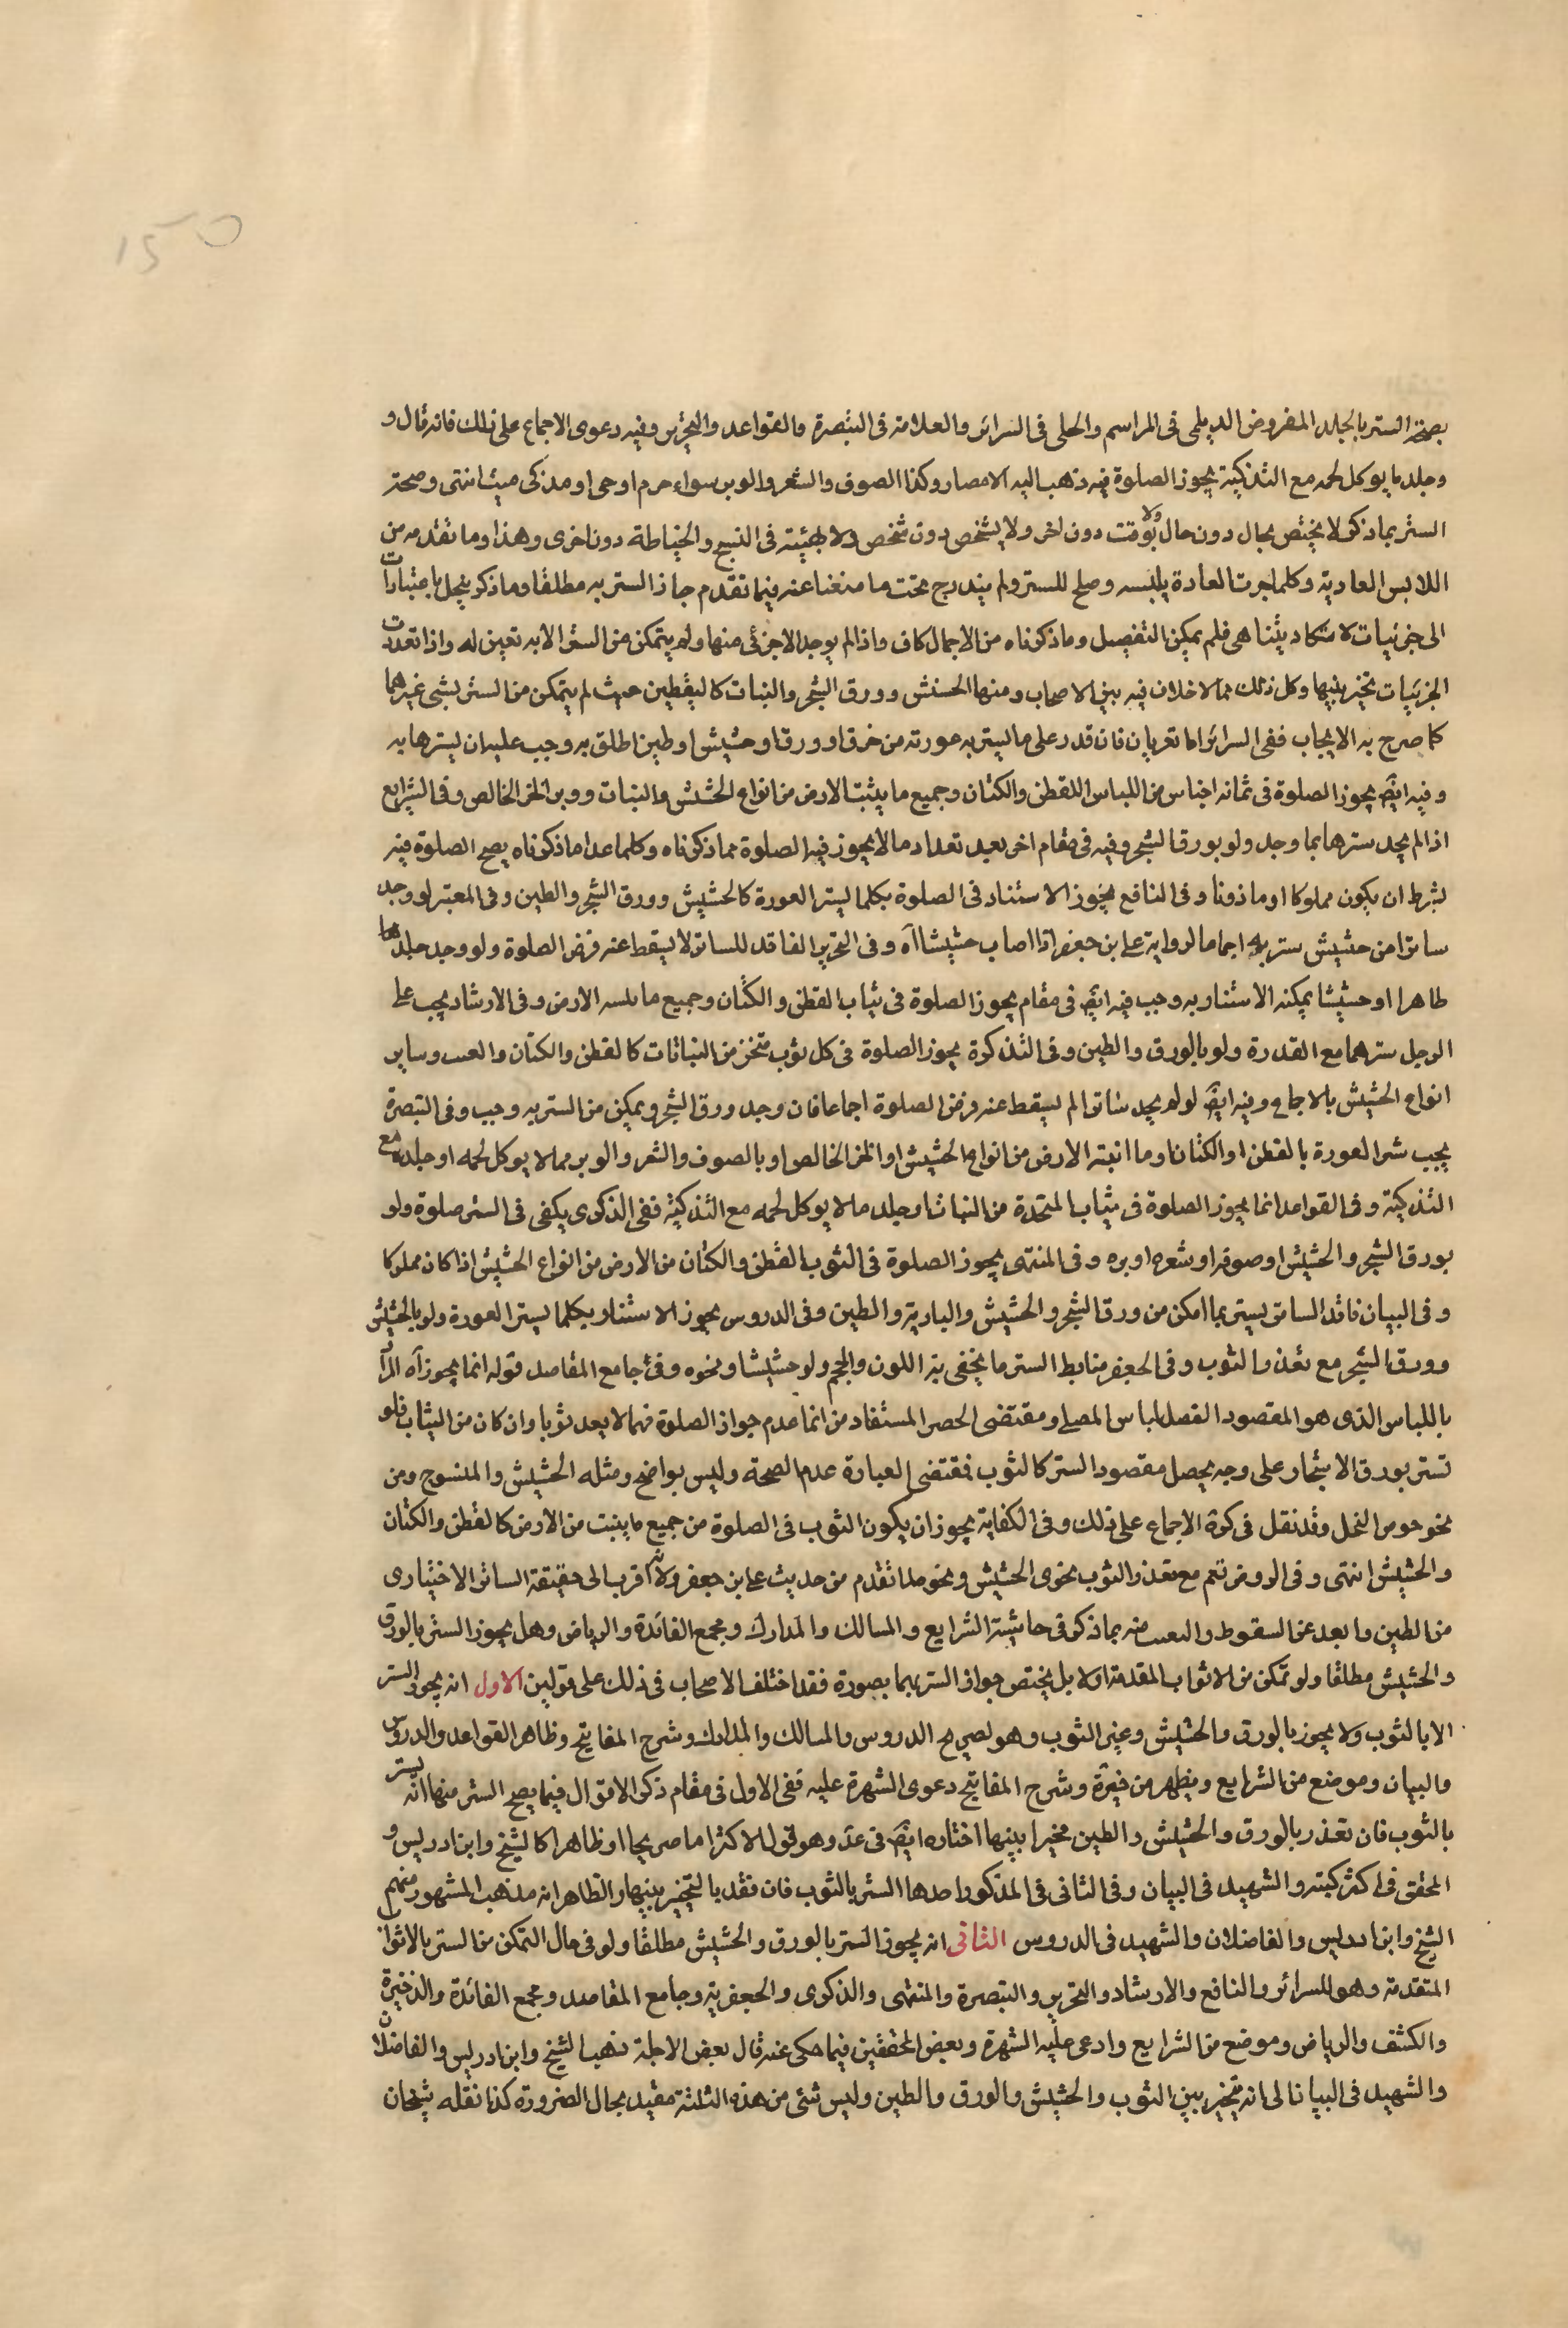 150
بصحة الستر بالجلد المفروض الديلمى فى المراسم والحلى فى السرائر والعلامة فى التبصرة والقواعد والتحرير وفيه دعوى الاجماع على ذلك فانه قال و
وجلد ما يوكل لحمه مع التذكية يجوز الصلوة فيه ذهب اليه الامصار وكذا الصوف والشعر والوبر سواء حرم اوحى او مذكى ميث انتهى وصحة
الستر بما ذكر لا يختص بحال دون حال ولا بوقت دون اخر ولا بشخص دون شخص ولا بهيئة فى النسج والخياطة دون اخرى وهذا وما تقدمه من
اللابس العادية وكلما جرت العادة بلبسه وصلح للستر ولم يندرج تحت ما منعنا عنه فيما تقدم جاز الستر به مطلقا وما ذكر ينحل باعتبارات
الى جزئيات لا تكاد يتناهى فلم يمكن التفصيل وما ذكرناه من الاجمال كاف واذا لم يوجد الا جزئى منها ولم يتمكن من الستر الا به تعين له واذا تعددت
الجزئيات تخير بينها وكل ذلك مما لا خلاف فيه بين الاصحاب ومنها الحشيش وورق الشجر والنبات كاليقطين حيث لم يتمكن من الستر بشئ غيرهما
كما صرح به الايجاب ففى السرائر اما تعريان فان قدر على ما ليستر به عورته من خرق او ورق او حشيش او طين اطلق به وجب عليه ان ليسترها به
وفيه ايضا يجوز الصلوة فى ثمانه اجناس من اللباس اللقطن والكتان وجميع ما ينبت الارض من انواع الحشيش والنبات ووبر الخز الخالص وفى الشرايع
اذا لم يجد سترها بما وجد ولو بورق الشجر وفيه فى مقام اخر بعد تعداد ما لا يجوز فيه الصلوة مما ذكرناه وكلما عدا ما ذكرناه يصح الصلوة فيه
بشرط ان يكون مملوكا او ماذونا وفى النافع يجوز الاستتار فى الصلوة بكلما ليستر العورة كالحشيش وورق الشجر والطين وفى المعتبر لو وجد
ساترا من حشيش ستر به اجماعا لرواية على بن جعفر اذا اصاب حشيشا اه وفى التحرير الفاقد للساتر لا يسقط عنه فرض الصلوة ولو وجد جلدا
طاهرا او حشيشا يمكنه الاستتار به وجب فيه ايضا فى مقام يجوز الصلوة فى ثياب القطن والكتان وجميع ما الارض وفى الارشاد يجب على
الرجل سترهما مع القدرة ولو بالورق والطين وفى التذكرة يجوز الصلوة فى كل ثوب متخذ من النباتات كالقطن والكتان والعسب وساير
انواع الحشيش بالاجماع وفيه ايضا لو لم يجد ساترا لم يسقط عنه فرض الصلوة اجماعا فان وجد ورق الشجر ويمكن من الستر به وجب وفى التبصرة
يجب ستر العورة بالقطن او الكتان او ما انبته الارض من انواع الحشيش او الخز الخالص او بالصوف والشعر والوبر مما لا يوكل لحمه او جلده مع
التذكية وفى القواعد انما يجوز الصلوة فى ثياب المتخذة من النبات او جلد ما لا يوكل لحمه مع التذكية ففى الذكرى يكفى فى الستر صلوة ولو
بورق الشجر والحشيش او صوفه او شعره او بره وفى المنتهى يجوز الصلوة فى الثوب القطن والكتان من الارض من انواع الحشيش اذا كان مملوكا
وفى البيان فاقد الساتر يستر بما امكن من ورق الشجر والحشيش والبارية والطين وفى الدروس يجوز الاستتار بكلما ليستر العورة ولو بالحشيش
وورق الشجر مع تعذر الثوب وفى الجعفر ضابط الستر ما يخفى به اللون والحجم ولو حشيشا ونحوه وفى جامع المقاصد قوله انما يجوز اه المراد
باللباس الذى هو المقصود الفصل لباس المصلى ومقتضى الحصر المستفاد من انما عدم جواز الصلوة فيما لا يعد ثوبا وان كان من الثياب فلو
تستر بورق الاشجار على وجه يحصل مقصود الستر كالثوب فمقتضى العبارة عدم الصحة وليس بواضح ومثله الحشيش والمنسوج ومن
نحو خوص النخل وقد نقل فى كرة الاجماع على ذلك وفى الكفاية يجوز ان يكون الثوب فى الصلوة من جميع ما ينبت من الارض كالقطن والكتان
والحشيش انتهى وفى الروض نعم مع تعذر الثوب بخوى الحشيش ونحو ما تقدم من حديث على بن جعفر ولانه اقرب الى حقيقة الساتر الاختيارى
من الطين وابعد عن السقوط منه بما ذكر فى حاشية الشرايع والمسالك والمدارك ومجمع الفائدة والرياض وهل يجوز الستر بالورق
والحشيش مطلقا ولو تمكن من الاثواب المقدمة اولا بل يختص جواز الستر بهما بصورة فقد اختلف الاصحاب فى ذلك على قولين الاول انه يجوز الستر
الا بالثوب ولا يجوز بالورق والحشيش وغير الثوب وهو لصريح الدروس والمسالك والمدارك وشرح المفاتيح وظاهر القواعد والدروس
والبيان وموضع من الشرايع ويظهر من خيرة وشرح المفاتيح دعوى الشهرة عليه ففى الاول فى مقام ذكر الاقوال فيما يصح الستر منها انه يستر
بالثوب فان تعذر بالورق والحشيش والطين مخيرا بينها اختاره ايضا فى عد وهو قول الاكثر اما صريحا او ظاهرا كالشيخ وابن ادريس و
المحقق فى اكثر كتبه والشهيد فى البيان وفى الثانى فى المذكور احدها الستر بالثوب فان فقد بالتخير بينها والظاهر انه مذهب المشهور منهم
الشيخ وابن ادريس والفاضلان والشهيد فى الدروس الثانى انه يجوز الستر بالورق والحشيش مطلقا ولو فى حال التمكن من الستر بالاثواب
المتقدمة وهو للسرائر والنافع والارشاد والتحرير والتبصرة والمنتهى والذكرى والجعفرية وجامع المقاصد ومجمع الفائدة والذخيرة
والكشف والرياض وموضع من الشرايع وادعى عليه الشهرة وبعض المحققين فيما حكى عنه قال بعض الاجلة ذهب الشيخ وابن ادريس والفاضلان
والشهيد فى البيان الى انه يخير بين الثوب والحشيش والورق والطين وليس شئ من هذه الثلثة مقيد بحال الضرورة كذا نقله شيخان